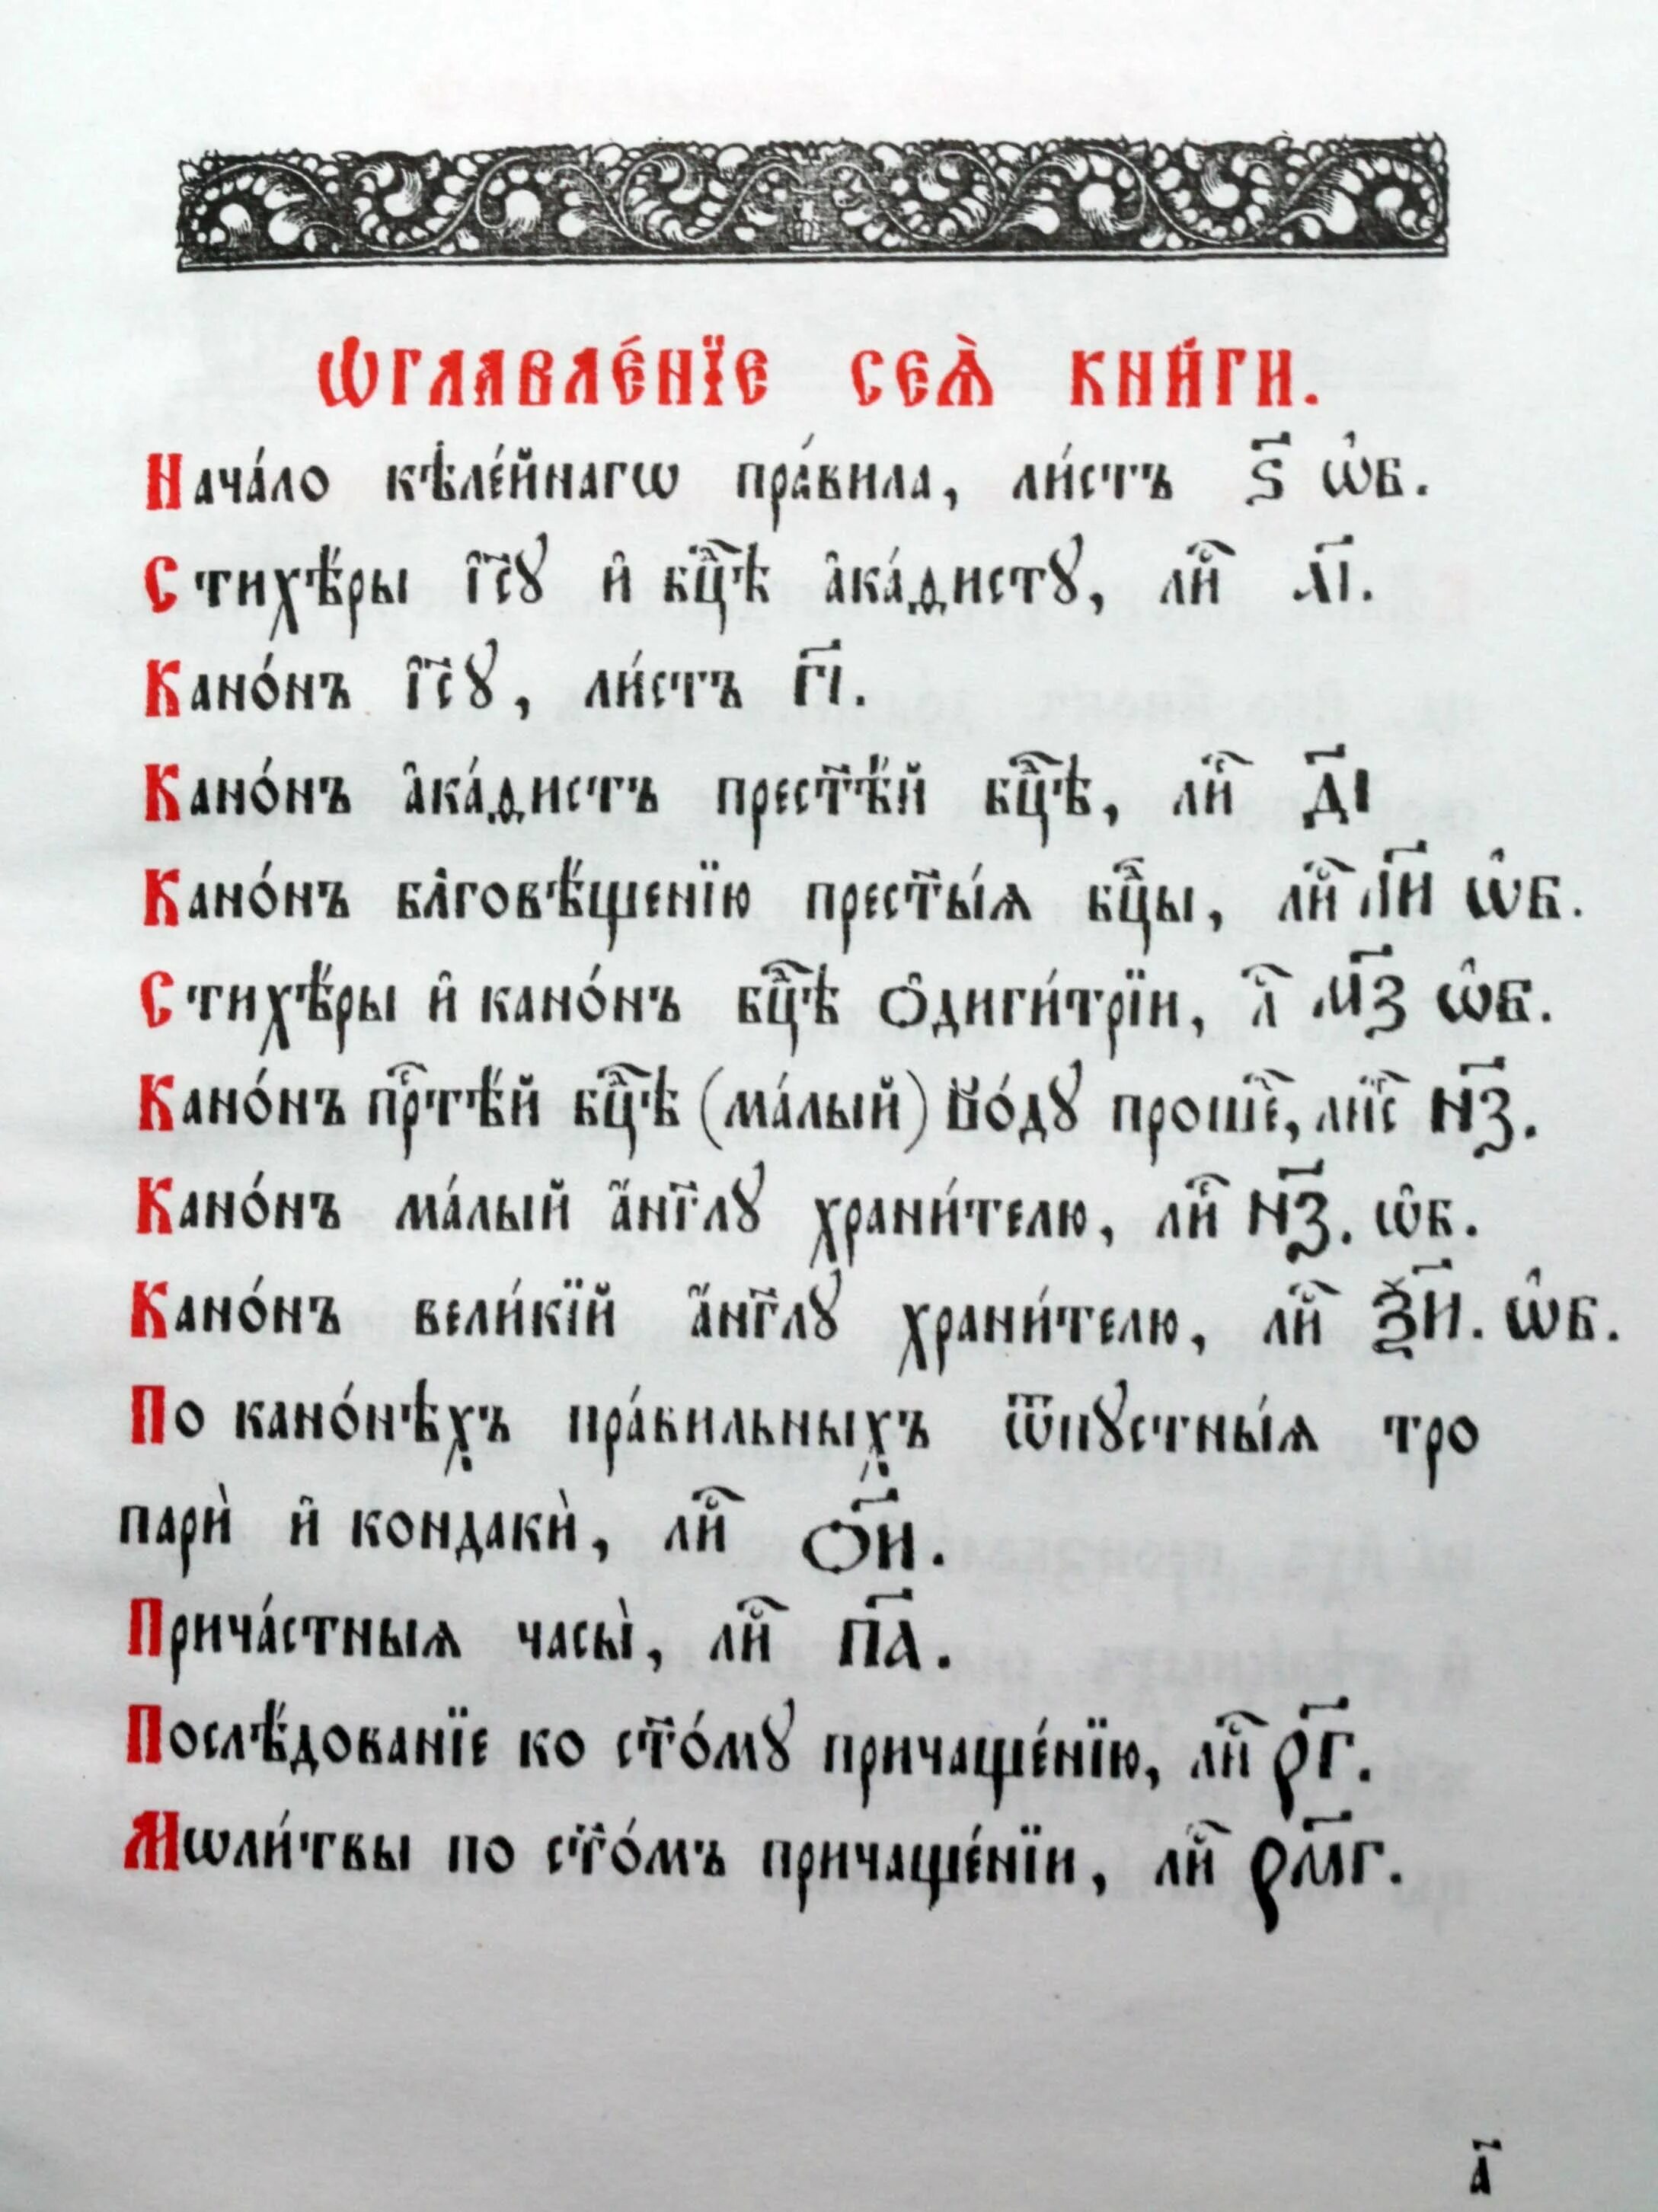 Ѡ҆главле́нїе сеѧ̀ кни́ги.
Нача́ло кѣле́йнагѡ пра́вила, ли́стъ ѕ҃ ѡ҆б.
Стихѣ́ры і҆с҃ꙋ и҆ бц҃ѣ а҆ка́дистꙋ, лиⷭ҇ а҃і.
Кано́нъ і҆с҃ꙋ, ли́стъ г҃і.
Кано́нъ а҆ка́дистъ прест҃ѣ́й бцⷣѣ, лиⷭ҇ д҃і
Кано́нъ бл҃говѣ́щенїю прест҃ы́ѧ бцⷣы, лиⷭ҇ л҃и ѡ҆б.
Стихѣ́ры и҆ кано́нъ бцⷣѣ ѻ҆диги́трїи, лⷭ҇ м҃з ѡ҆б.
Кано́нъ прⷭ҇тѣ́й бцⷣѣ (ма́лый) Во́дꙋ проше́, лиⷭ҇ н҃з.
Кано́нъ ма́лый а҆́нг҃лꙋ храни́телю, лиⷭ҇ н҃з. ѡ҆б.
Кано́нъ вели́кїй а҆́нг҃лꙋ храни́телю, лиⷭ҇ ѯ҃и. ѡ҆б.
По кано́нѣхъ пра́вильныхъ ѿпꙋстны́ѧ тро
парѝ и҆ кондакѝ, лиⷭ҇ ѻ҃и.
Прича́стныѧ часы̀, лиⷭ҇ п҃а.
Послѣ́дованїе ко ст҃о́мꙋ причаще́нїю, лиⷭ҇ р҃г.
Мѡли́твы по ст҃о́мъ причаще́нїи, лиⷭ҇ рм҃г.
а҃